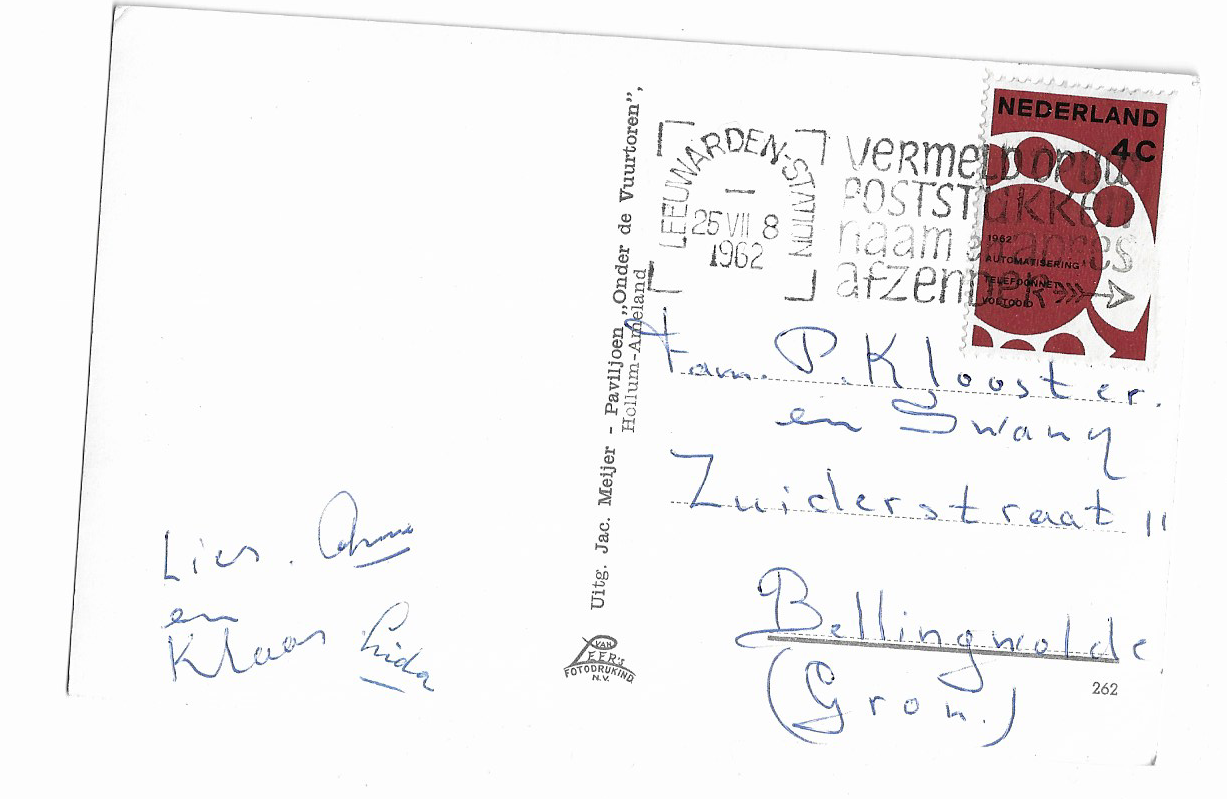 Lies.
en
Klaas Lida
Uitg. Jac. Meijer - Paviljoen „Onder de Vuurtoren”,
Hollum-Ameland
VAN
LEER'S
FOTODRUKIND
N.V.
LEEUWARDEN-STATION
25 VII 8
1962
VERMELD OP UW
POSTSTUKKEN
naam en adres
afzender
NEDERLAND
4C
1962
AUTOMATISERING
TELEFOONNET
VOLTOOID
Fam. P. Klooster.
en Swany
Zuiderstraat 11
Bellingwolde
(Gron.)
262